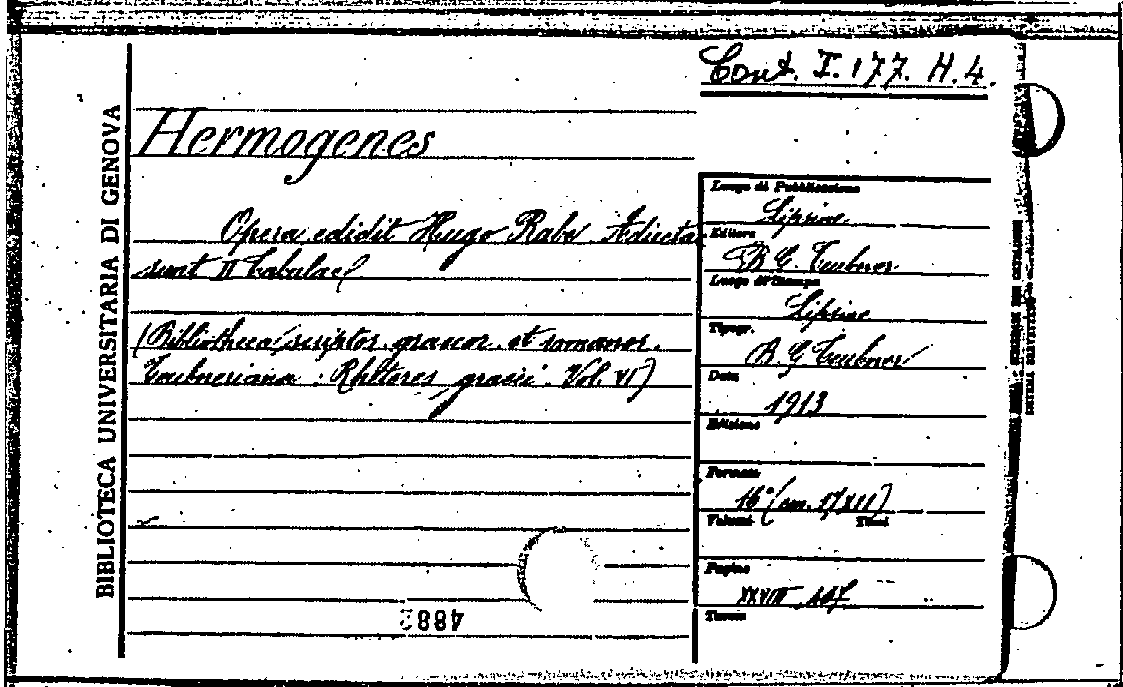 Cont. I. 177. H. 4.
BIBLIOTECA UNIVERSITARIA DI GENOVA
Hermogenes
Opera edidit Hugo Rabe Adiectae
sunt II tabulae
(Bibliotheca scriptor. graecor. et romanor.
Teubneriana : Rhetores graeci. Vol. VI)
Luogo di Pubblicazione
Lipsiae
Editore
B. G. Teubner
Luogo di Stampa
Lipsiae
Tipogr.
B. G. Teubner
Data
1913
Edizione
Formato
16° (cm. 17
Volumi Tomi
Pagine
XXVIII
Tavole
4882